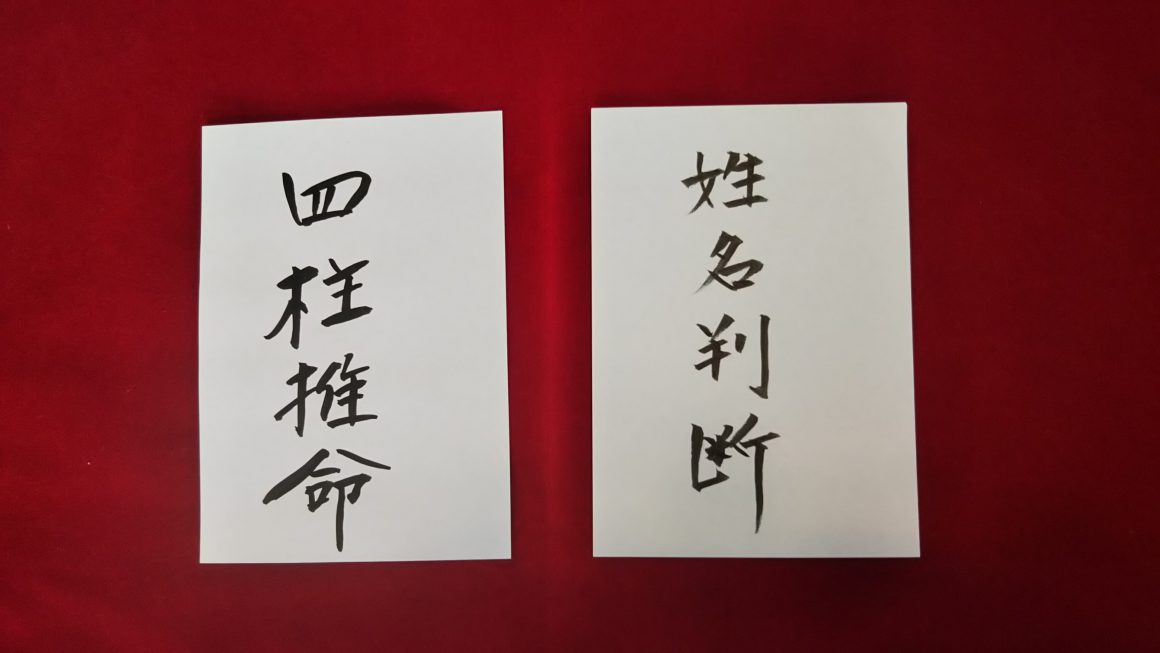 四柱推命
姓名判断